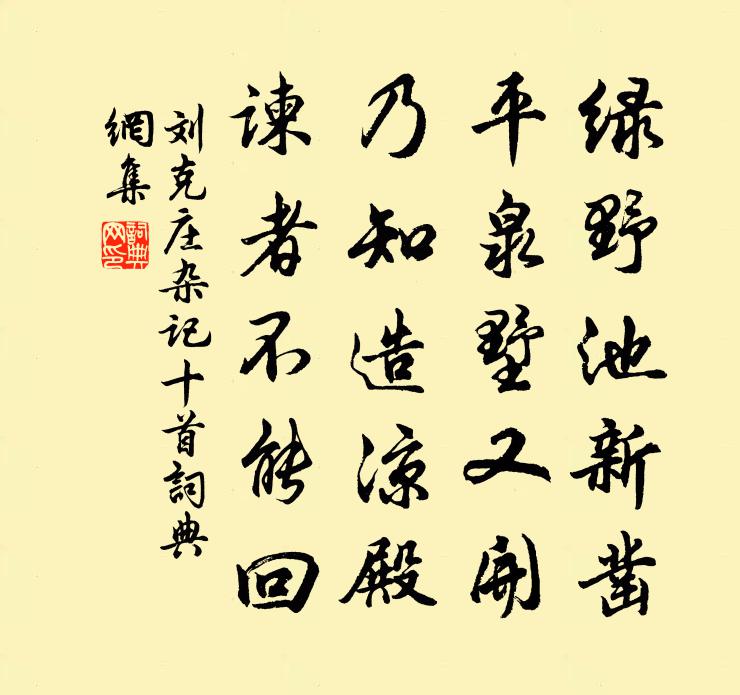 绿野池新凿
平泉墅又開
乃知造凉殿
谏者不能回
刘克庄杂记十首詞典
網集
詞典
网印